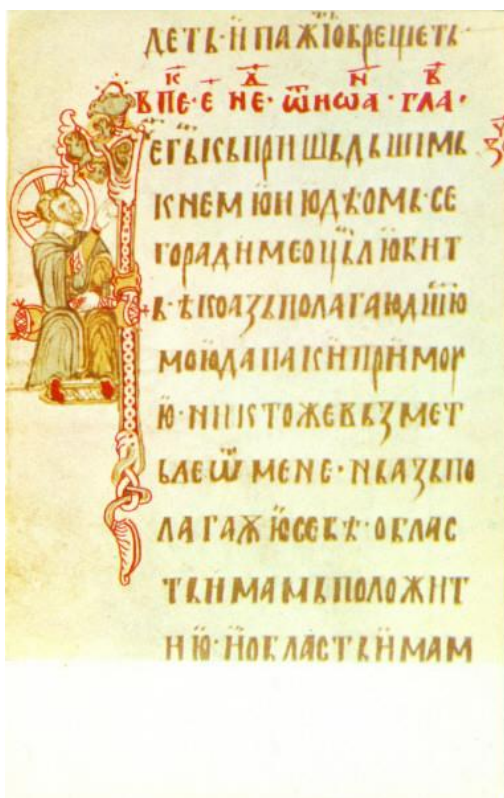 детъ· и пажїобрещеть
въ пе· е҃· не· ѿ иѡа· гла·
егъ їсъ пришьдъшимъ
к нем юиюдѣомъ· се
го ради ме оц҃ъ любит
ъ· ѣко азъ полагаю дш҃ю
мою да пакн примоу
ю· никтоже възмет
ь ѧе ѿ мене· нъ азъ по
лагаѫ ю о себѣ· облас
ть имамъ положит
и ю· и область имам